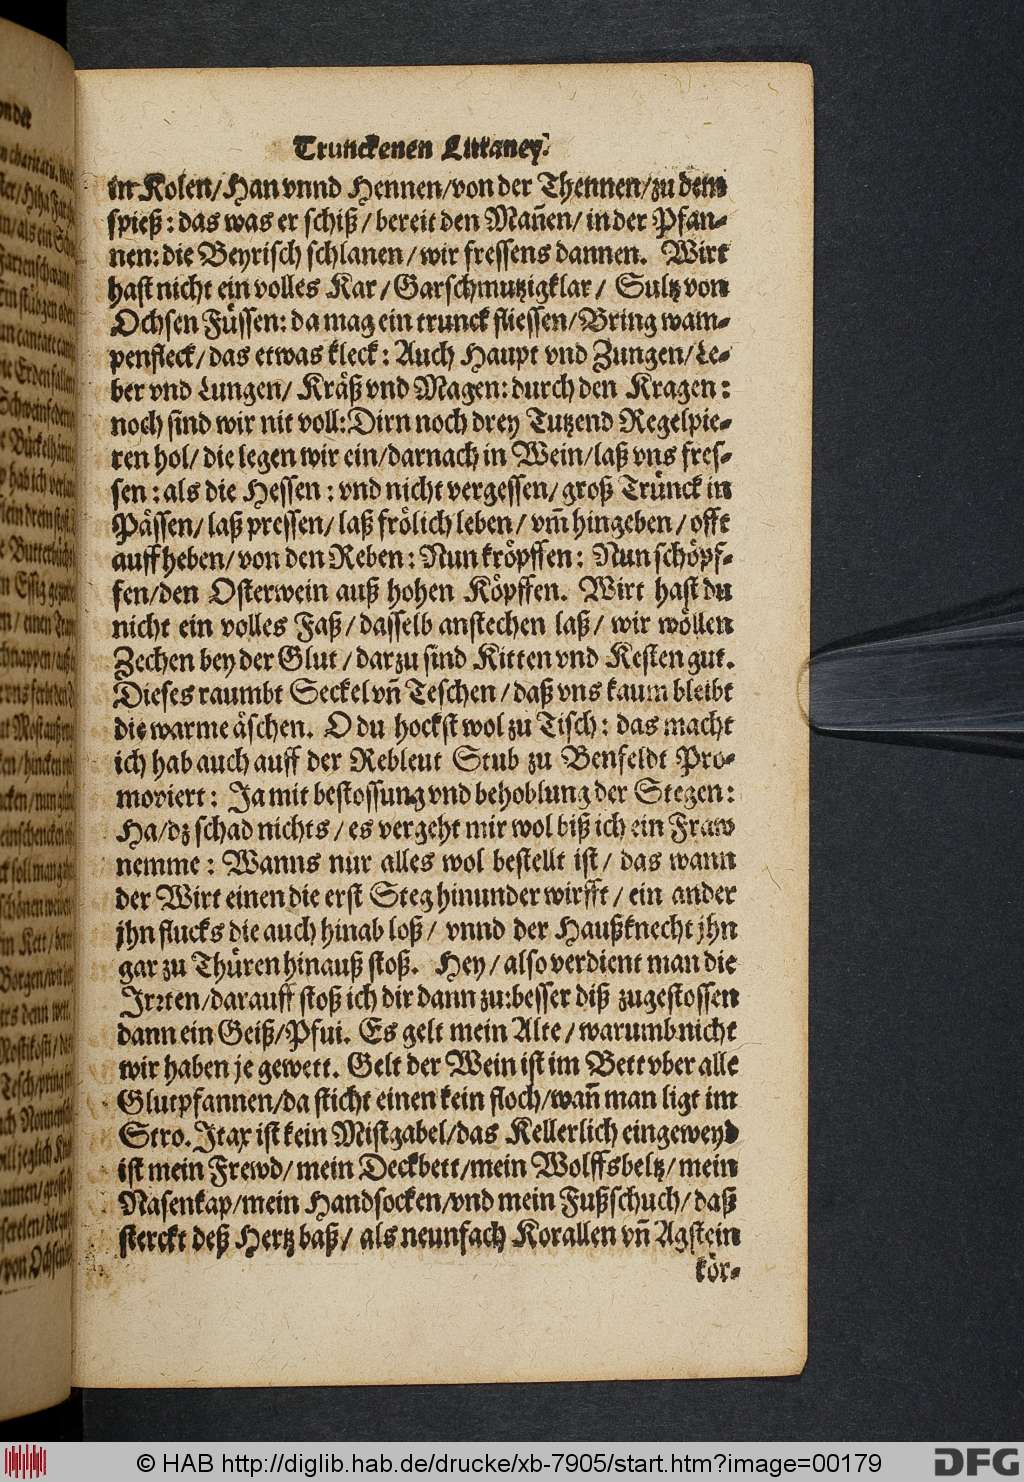 Trunckenen Littaney.
in Kolen/Han vnnd Hennen/von der Thennen/zu dem
spieß: das was er schiß/bereit den Mañen/in der Pfan-
nen: die Beyrisch schlanen/wir fressens dannen. Wirt
hast nicht ein volles Kar/Garschmutzigklar/ Sultz von
Ochsen Füssen: da mag ein trunck fliessen/Bring wam-
penfleck/das etwas kleck: Auch Haupt vnd Zungen/Le-
ber vnd Lungen/ Kräß vnd Magen: durch den Kragen:
noch sind wir nit voll: Dirn noch drey Tutzend Regelpie-
ren hol/die legen wir ein/darnach in Wein/laß vns fres-
sen: als die Hessen: vnd nicht vergessen/groß Trünck in
Pässen/laß pressen/laß frölich leben/vm̃ hingeben/offt
auff heben/von den Reben: Nun kröpffen: Nun schöpf-
fen/den Osterwein auß hohen Köpffen. Wirt hast du
nicht ein volles Faß/dasselb anstechen laß/wir wöllen
Zechen bey der Glut/darzu sind Kitten vnd Kesten gut.
Dieses raumbt Seckel vñ Teschen/daß vns kaum bleibt
die warme äschen. O du hockst wol zu Tisch: das macht
ich hab auch auff der Rebleut Stub zu Benfeldt Pro-
moviert: Ja mit bestossung vnd behoblung der Stegen:
Ha/dz schad nichts/es vergeht mir wol biß ich ein Fraw
nemme: Wanns nur alles wol bestellt ist/das wann
der Wirt einen die erst Steg hinunder wirfft/ein ander
jhn flucks die auch hinab loß/vnnd der Haußknecht jhn
gar zu Thüren hinauß stoß. Hey/also verdient man die
Jrrten/darauff stoß ich dir dann zu: besser diß zugestossen
dann ein Geiß/Pfui. Es gelt mein Alte/warumb nicht
wir haben je gewett. Gelt der Wein ist im Bett vber alle
Glutpfannen/da sticht einen kein floch/wañ man ligt im
Stro. Jtax ist kein Mistgabel/das Kellerlich eingeweyd
ist mein Frewd/mein Deckbett/mein Wolffsbeltz/mein
Nasenkap/mein Handsocken/vnd mein Fußschuch/daß
sterckt deß Hertz baß/als neunfach Korallen vñ Agstein
kör-
© HAB http://diglib.hab.de/drucke/xb-7905/start.htm?image=00179
DFG